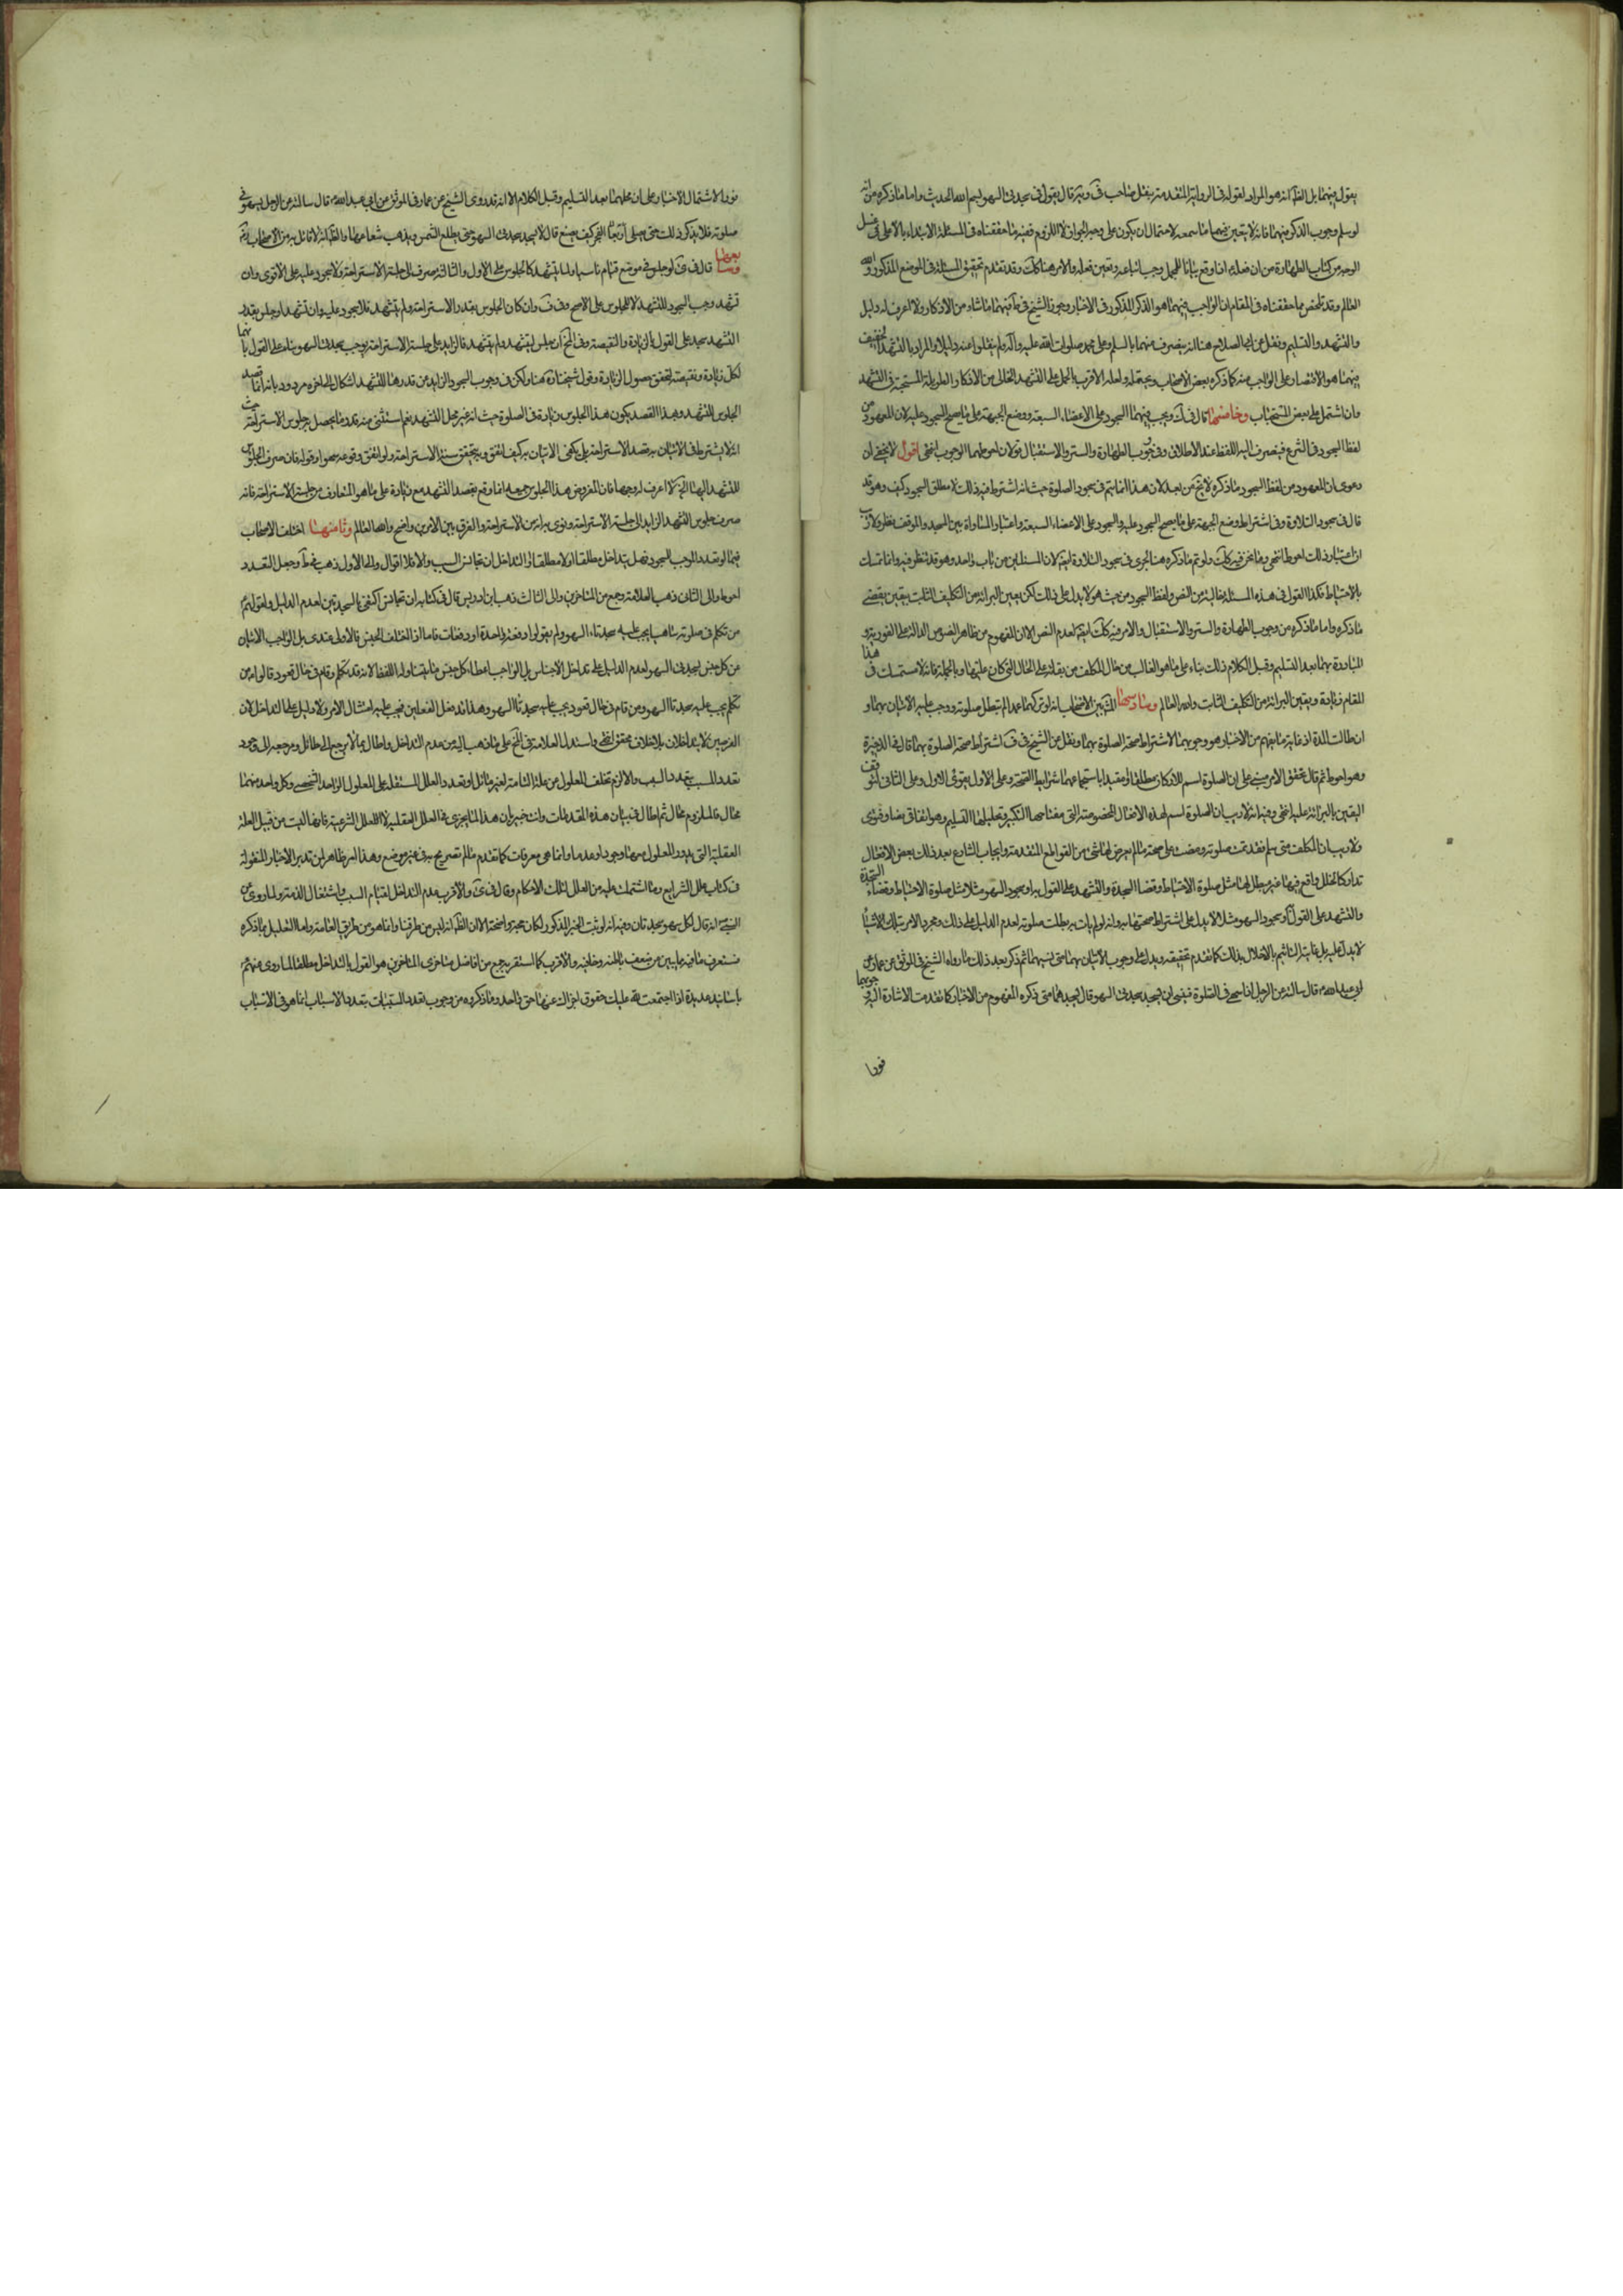 يقول فيهما بل الظ انه هو المراد لقوله فى الرواية المتقدمة بنقل صاحب فى ويه قال يقول فى سجدتى السهو بسم الله الحديث واما ما ذكره من انه
لو سلم وجوب الذكر فيهما فانه لا يتعين فيهما ما سمعه لاحتمال ان يكون على وجه الجواز لا اللزوم ففيه ما حققناه فى المسئلة الابتداء بالاعلى فى غسل
الوجه من كتاب الطهارة من ان فعله اذا وقع بيانا للمجمل وجب اتباعه وتعين فعله والامر هنا كك وقد تقدم تحقيق المسئلة فى الموضع المذكور والله
العالم وقد تلخص مما حققناه فى المقام ان الواجب فيهما هو الذكر المذكور فى الاخبار وجوز الشيخ فى ط فيهما ما شاء من الاذكار ولا اعرف له دليل
والتشهد والتسليم ونقل عن ابى الصلاح هنا انه ينصرف منهما بالسلم على محمد صلوات الله عليه وآله ولم ينقلوا عنه دليلا والمراد بالتشهد الخفيف
فيهما هو الاقتصار على الواجب منه كما ذكره بعض الاصحاب ويحتمله ولعله الاقرب بالحمل على التشهد الخالى من الاذكار الطويلة المستحبة فى التشهد
وان اشتمل على بعض المستحبات وخامسها قال فى ك ويجب فيهما السجود على الاعضاء السبعة ووضع الجبهة على ما يصح السجود عليه لان المعهود من
لفظ السجود فى الشرع فينصرف اليه اللفظ عند الاطلاق وفى وجوب الطهارة والستر والاستقبال قولان احوطهما الوجوب انتهى اقول لا يخفى ان
دعوى ان المعهود من لفظ السجود ما ذكره لا يخ من بعد لان هذا انما يتم فى سجود الصلوة حيث انه اشترط فيه ذلك لا مطلق السجود كيف وهو قد
قال فى سجود التلاوة وفى اشتراط وضع الجبهة على ما يصح السجود عليه والسجود على الاعضاء السبعة واعتبار المساواة بين المسجد والموقف نظر ولا ريب
ان اعتبار ذلك احوط انتهى وما نحن فيه كك ولو تم ما ذكره هنا لجرى فى سجود التلاوة ايضا لان المسئلتين من باب واحد وهو قد تنظر فيه وانما تمسك
بالاحتياط فكذا القول فى هذه المسئلة خالية من النص ولفظ السجود من حيث هو لا يدل على ذلك لكن يقين البرائة من التكليف الثابت بيقين يقتضى
ما ذكره واما ما ذكره من وجوب الطهارة والستر والاستقبال والامر فيه كك ايضا لعدم النص الا ان المفهوم من ظاهر النصوص الدالة على الفورية و
المبادرة بهما بعد التسليم وقبل الكلام ذلك بناء على ما هو الغالب من حال المكلف من بقائه على الحال التى كان عليها وبالجملة فانه لا مستمسك فى هذا
المقام زيادة ويقين البرائة من التكليف الثابت والله العالم وسادسها المشهور بين الاصحاب انه لو تركهما عمدا لم تبطل صلوته ووجب عليه الاتيان بهما و
ان طالت المدة اذ غاية ما يفهم من الاخبار هو وجوبهما لا اشتراط صحة الصلوة بهما ونقل عن الشيخ فى ف اشتراط صحة الصلوة بهما قال فى الذخيرة
وهو احوط ثم قال تحقيق الامر مبنى على ان الصلوة اسم للاركان مطلقا او مقيدا باستجماعهما شرايط الصحة وعلى الاول يقوى الاول وعلى الثانى توقف
اليقين بالبرائة عليه انتهى وفيه انه لا ريب ان الصلوة اسم لهذه الافعال المخصوصة التى مفتاحها التكبير وتحليلها التسليم وهو اتفاقى نصا وفتوى
ولا ريب ان المكلف متى سلم فقد تمت صلوته ومضت على صحة ما لم يعرض لها شئ من القواطع المتقدمة وايجاب الشارع بعد ذلك بعض الافعال
تداركا لخلل واقع فيها غير مبطل لها مثل صلوة الاحتياط وقضا السجدة والتشهد على القول به او سجود السهو مثلا مثل صلوة الاحتياط وقضاء السجدة
والتشهد على القول او سجود السهو مثلا لا يدل على اشتراط صحتها به وانه لو لم يات به بطلت صلوته لعدم الدليل على ذلك ومجرد الامر بتلك الاشياء
لا يدل عليه بل غايته التاثيم بالاخلال بذلك كما تقدم تحقيقه ويدل على وجوب الاتيان بهما متى نسيهما ثم ذكر بعد ذلك ما رواه الشيخ فى الموثق عن عمار عن
ابى عبد الله ع قال سالته عن الرجل اذا سهى فى الصلوة فينسى ان يسجد سجدتى السهو قال يسجدهما متى ذكره المفهوم من الاخبار كما تقدمت الاشارة اليه وجوبهما
فورا
فورا لاشتمال الاخبار على ان محلهما بعد التسليم وقبل الكلام الا انه قد روى الشيخ عن عمار فى الموثق عن ابى عبد الله ع قال سالته عن الرجل يسهو فى
صلوته فلا يذكر ذلك حتى يصلى الفجر كيف يصنع قال لا يسجد سجدتى السهو حتى يطلع الشمس ويذهب شعاعها والظ انه لا قائل به من الاصحاب
وسابعها قال فى ى لو جلس فى موضع قيام ناسيا ولما يتشهد كالجلوس على الاول والثالثة صرف الى جلسة الاستراحة ولا سجود عليه على الاقوى وان
تشهد وجب السجود للتشهد لا للجلوس على الاصح وفى ف وان كان الجلوس بقدر الاستراحة ولم يتشهد فلا سجود عليه وان تشهد او جلس بقدر
التشهد سجد على القول بالزيادة والنقيصة وفى لف ان جلس ليتشهد ولم يتشهد فالزايد على جلسة الاستراحة يوجب سجدتى السهو بناء على القول بانهما
لكل زيادة ونقيصة لتحقق حصول الزيادة وقول شيخنا هنا ولكن فى وجوب السجود الزايد من قدرها للتشهد اشكال الى اخره مردود بانه انما قصد
الجلوس للتشهد وبهذا القصد يكون هذا الجلوس زيادة فى الصلوة حيث انه غير محل التشهد نعم استثنى منه قدر ما يحصل به جلوس الاستراحة حيث
انه لا يشترط فى الاتيان به قصد الاستراحة بل يكفى الاتيان به كيف اتفق ويتحقق سنة الاستراحة ولو اتفق وقوعه سهوا وقوله فان صرف الجلوس
للتشهد اليها الخ لا اعرف له وجها فان المفروض هذا الجلوس جميعه انما وقع بقصد التشهد مع زيادة على ما هو المتعارف من جلسة الاستراحة فانه
صرف جلوس التشهد الزايد الى جلسة الاستراحة ونوى به انه من الاستراحة والفرق بين الامرين واضح والله العالم وثامنها اختلف الاصحاب
فيما لو تعدد الموجب للسجود فهل يتداخل مطلقا او لا مطلقا او التداخل ان تجانس السبب والا فلا اقوال والى الاول ذهب فى ط وجعل التعدد
احوط والى الثانى ذهب العلامة وجمع من المتاخرين والى الثالث ذهب ابن ادريس قال فى كتابه ان تجانس اكتفى بالسجدتين لعدم الدليل ولقولهم ع
من تكلم فى صلوته ساهيا يجب عليه سجدتاء السهو ولم يقولوا دفعة واحدة او دفعات فاما اذا اختلف الجنس فالاولى عندى بل الواجب الاتيان
عن كل جنس بسجدتى السهو لعدم الدليل على تداخل الاجناس بل الواجب اعطاء كل جنس ما يتناوله اللفظ لانه قد تكلم وقام فى حال قعود قالوا ع من
تكلم يجب عليه سجدتا السهو ومن قام فى حال قعود يجب عليه سجدتا السهو وهذا قد فعل الفعلين فيجب عليه امتثال الامر ولا دليل على التداخل لان
الفرضين لا يتداخلان بلا خلاف محقق انتهى واستدل العلامة فى لف على ما ذهب اليه من عدم التداخل واطال بما لا يرجع الى طائل ومرجعه الى وجود
تعدد المسبب بتعدد السبب والا لزم تخلف المعلول عن علته التامة لغير مانع او تعدد العلل المستقلة على المعلول الواحد الشخصى وكل واحد منهما
محال فالملزوم محال ثم اطال فى بيان هذه المقدمات وانت خبير بان هذا انما يجرى فى العلل العقلية لا العلل الشرعية فانها ليست من قبيل العلة
العقلية التى يدور المعلول مدارها وجودا وعدما وانما هى معرفات كما تقدم ما لم تصريح به فى غير موضع وهذا امر ظاهر لمن تدبر الاخبار المنقولة
فى كتاب علل الشرايع وما اشتملت عليه من العلل لتلك الاحكام وقال فى ى والاقرب عدم التداخل لقيام السبب واشتغال الذمة ولما روى عن
النبى ص انه قال لكل سهو سجدتان وفيه انه لو ثبت الخبر المذكور لكان حجة واضحة الا ان الظ انه ليس من طرقنا وانما هو من طرق العامة واما التعليل بما ذكره
فستعرف ما فيه مما يبين من ضعف باطنه وخافيه والاقرب كما استقر به جمع من افاضل متاخرى المتاخرين هو القول بالتداخل مطلقا لما روى عنهم ع
باسانيد عديدة اذا اجتمعت لله عليك حقوق اجزاك عنها حق واحد وما ذكروه من وجوب تعدد المسببات بتعدد الاسباب انما هو فى الاسباب